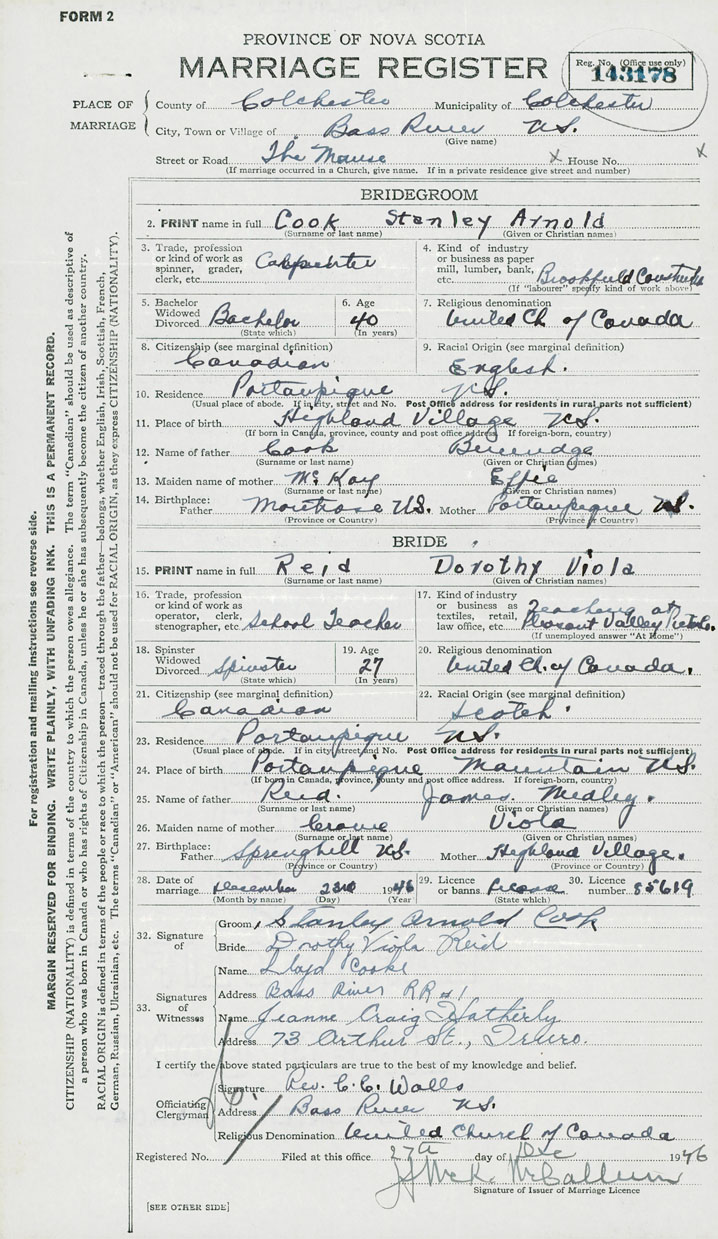 FORM 2
PROVINCE OF NOVA SCOTIA
MARRIAGE REGISTER
Reg. No. (Office use only)
143178
PLACE OF MARRIAGE
County of Colchester Municipality of Colchester
City, Town or Village of Bass River N.S.
(Give name)
Street or Road The Manse X House No. X
(If marriage occurred in a Church, give name. If in a private residence give street and number)
BRIDEGROOM
2. PRINT name in full Cook Stanley Arnold
(Surname or last name) (Given or Christian names)
3. Trade, profession or kind of work as spinner, grader, clerk, etc. Carpenter
4. Kind of industry or business as paper mill, lumber, bank, etc. Brookfield Construction
(If "labourer" specify kind of work above)
5. Bachelor Widowed Divorced Bachelor
(State which)
6. Age 40
(In years)
7. Religious denomination
United Ch. of Canada
8. Citizenship (see marginal definition)
Canadian
9. Racial Origin (see marginal definition)
English.
10. Residence Portaupique N.S.
(Usual place of abode. If in city, street and No. Post Office address for residents in rural parts not sufficient)
11. Place of birth Highland Village N.S.
(If born in Canada, province, county and post office address. If foreign-born, country)
12. Name of father Cook
(Surname or last name) (Given or Christian names)
13. Maiden name of mother McKay Effie
(Surname or last name) (Given or Christian names)
14. Birthplace: Father Montrose N.S. Mother Portaupique N.S.
(Province or Country) (Province or Country)
BRIDE
15. PRINT name in full Reid Dorothy Viola
(Surname or last name) (Given or Christian names)
16. Trade, profession or kind of work as operator, clerk, stenographer, etc. School Teacher
17. Kind of industry or business as textiles, retail, law office, etc. Teaching at Pleasant Valley
(If unemployed answer "At Home")
18. Spinster Widowed Divorced Spinster
(State which)
19. Age 27
(In years)
20. Religious denomination
United Ch. of Canada.
21. Citizenship (see marginal definition)
Canadian
22. Racial Origin (see marginal definition)
Scotch.
23. Residence Portaupique N.S.
(Usual place of abode. If in city, street and No. Post Office address for residents in rural parts not sufficient)
24. Place of birth Portaupique Mountain N.S.
(If born in Canada, province, county and post office address. If foreign-born, country)
25. Name of father Reid. James Medley.
(Surname or last name) (Given or Christian names)
26. Maiden name of mother Crowe Viola
(Surname or last name) (Given or Christian names)
27. Birthplace: Father Springhill N.S. Mother Highland Village.
(Province or Country) (Province or Country)
28. Date of marriage December 23rd 1946
(Month by name) (Day) (Year)
29. Licence or banns License
(State which)
30. Licence number 85619
32. Signature of
Groom, Stanley Arnold Cook
Bride Dorothy Viola Reid
33. Signatures of Witnesses
Name Lloyd Cooke
Address Bass River RR #1
Name Jeanne Craig Hatherly
Address 73 Arthur St., Truro.
I certify the above stated particulars are true to the best of my knowledge and belief.
Officiating Clergyman
Signature Rev. C. C. Walls
Address Bass River N.S.
Religious Denomination United Church of Canada
Registered No. Filed at this office 27th day of Dec 1946
McK. McCallum
Signature of Issuer of Marriage Licence
[SEE OTHER SIDE]
For registration and mailing instructions see reverse side.
MARGIN RESERVED FOR BINDING. WRITE PLAINLY, WITH UNFADING INK. THIS IS A PERMANENT RECORD.
CITIZENSHIP (NATIONALITY) is defined in terms of the country to which the person owes allegiance. The term "Canadian" should be used as descriptive of
a person who was born in Canada or who has rights of Citizenship in Canada, unless he or she has subsequently become the citizen of another country.
RACIAL ORIGIN is defined in terms of the people or race to which the person—traced through the father—belongs, whether English, Irish, Scottish, French,
German, Russian, Ukrainian, etc. The terms "Canadian" or "American" should not be used for RACIAL ORIGIN, as they express CITIZENSHIP (NATIONALITY).